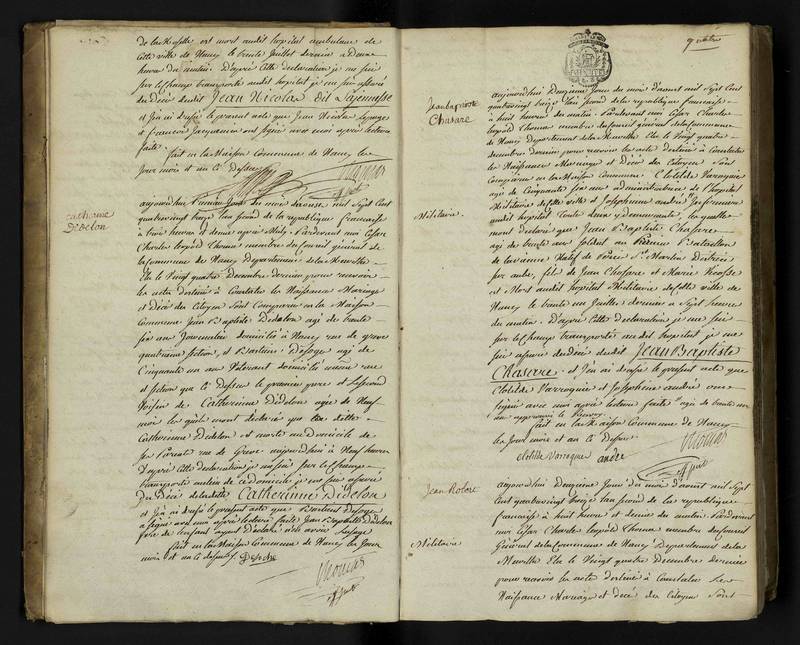 de la Moselle est mort audit hopital ambulance de
cette ville de Nancy le trente Juillet dernier a Deux
heures du matin. D'après cette declaration je me suis
sur le Champ transporté audit hopital je me suis assuré
du Décè dudit Jean Nicolas dit
et J'en ai dresé le present acte que Jean Nicolas
et francois ont signé avec moi apres lecture
faite.
fait en la Maison Commune de Nancy les
Jour mois et an ci Dessus
Catherine
Didelon
aujourdhui Premier Jour du mois daoust mil Sept Cent
quatrevingt treize lan second de la republique francaise
à trois heures et demie après Midy. Pardevant moi César
Charles léopold Thomas membre du Conseil général de
la commune de Nancy Departement de la Meurthe
Elu le Vingt quatre Decembre dernier pour recevoir
les actes destinés à Constater les Naissance Mariage
et Décè des Citoyens Sont Comparus en la Maison
Commune Jean Baptiste Didelon agé de trente
six ans Journalier domicilié à Nancy rue de greve
quatrieme section, et Bastien Desoye agé de
Cinquante un ans domicilié même rue
et section que ci Dessus le premier pere et le second
Voisin de Catherinne Didelon agée de Neuf
mois les quels mont declaré que la ditte
Catherinne Didelon est morte au domicile de
rue de Greve aujourdhui à Neuf heures
D'après cette declaration je me suis sur le Champ
transporté au dit domicile je me suis assuré
du Décè de ladite Catherinne Didelon
et J'en ai dresé le present acte que Bastien Desoye
a signé avec moi apres lecture faite Jean Baptiste Didelon
Pere de lenfant ayant déclaré ne savoir
fait en la Maison Commune de Nancy les Jour
mois et an ci dessus.
Thomas
quatre
Jean Baptiste
Chasare
Militaire.
aujourdhui Deuxieme Jour du mois d'aoust mil Sept Cent
quatrevingt treize lan second de la republique francaise
à huit heures du matin. Pardevant moi César Charles
léopold Thomas membre du Conseil général de la Commune
de Nancy Departement de la Meurthe Elu le Vingt quatre
decembre dernier pour recevoir les actes destinés à Constater
les Naissance Mariage et Décè des Citoyens Sont
Comparus en la Maison Commune Clotilde Varroquier
agée de Cinquante six ans administratrice de l'hopital
Militaire de cette ville et Josephinne andré Infirmiere
audit hopital toutes deux y demeurante, lesquelles
mont declaré que Jean Baptiste Chasare
agé de trente ans Soldat au Bataillon
de la vienne Natif de St Martin District
fils de Jean Chasare et Marie
est Mort audit hopital Militaire de cette ville de
Nancy le trente un Juillet dernier a Sept heures
du matin. D'apres cette declaration je me suis
sur le Champ transporté audit hopital je me
suis assuré du décè dudit Jean Baptiste
Chasare. et J'en ai dresé le present acte que
Clotilde Varroquier et Josephinne andré ont
signé avec moi apres lecture faite agé de trente un
an approuvé le Renvoy
fait en la Maison Commune de Nancy
les Jour mois et an ci Dessus
Clotilde Varroquier andré
Thomas
Jean Robert
Militaire
aujourdhui Deuxieme Jour du mois d'aoust mil Sept
Cent quatrevingt treize lan second de la republique
francaise à huit heures et demie du matin. Pardevant
moi César Charles léopold Thomas membre du Conseil
Général de la Commune de Nancy Departement de la
Meurthe Elu le Vingt quatre Decembre dernier
pour recevoir les actes destinés à Constater les
Naissance Mariage et decé des Citoyens Sont